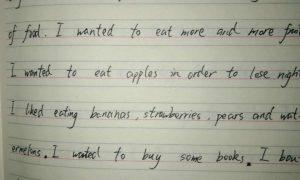 of food. I wanted to eat more and more
I wanted to eat apples in order to lose
I liked eating bananas, strawberries, pears and wat-
ermelons. I wanted to buy some books. I